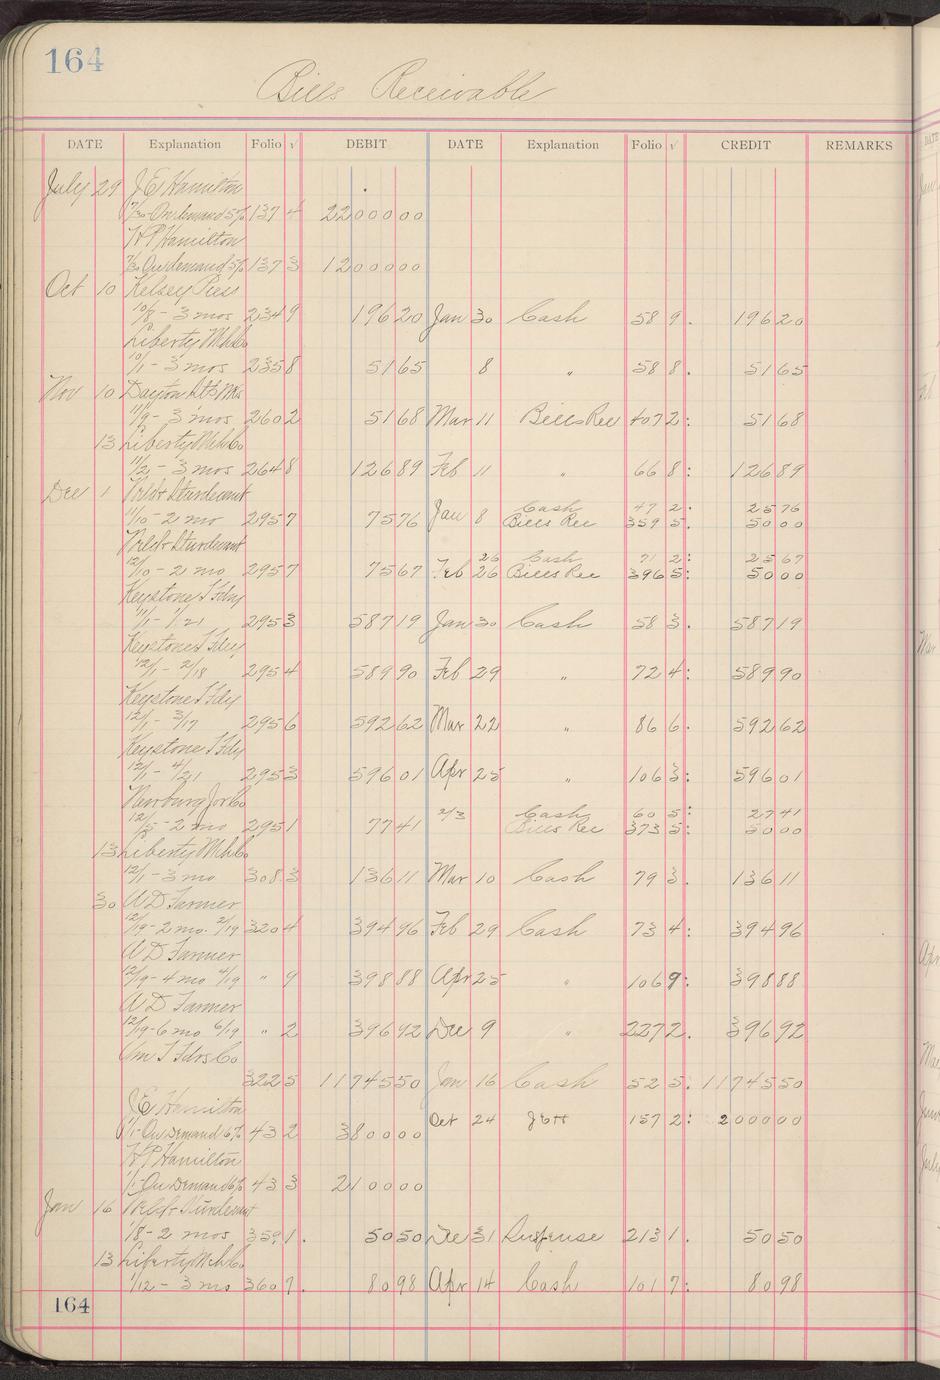 164
Bills Receivable
DATE Explanation Folio √ DEBIT DATE Explanation Folio √ CREDIT REMARKS
July 29 J E Hamilton
7/30 - On demand 5% 137 4 2200000
H P Hamilton
7/30 On demand 5% 137 3 1200000
Oct 10 Kelsey Press
10/8 - 3 mos 234 9 19620 Jan 30 Cash 58 9. 19620
Liberty Mch Co
10/1 - 3 mos 235 8 5165 8 " 58 8. 5165
Nov 10 Dayton
11/9 - 3 mos 260 2 5168 Mar 11 Bills Rec 407 2: 5168
13 Liberty Mch Co
11/2 - 3 mos 264 8 12689 Feb 11 " 66 8: 12689
Dec 1 Sturdevant
11/10 - 2 mo 295 7 7576 Jan 8 Cash 47 2. 2576
Bills Rec 359 5. 5000
Sturdevant
12/10 - 2 mo 295 7 7567 26 Cash 71 2: 2567
Feb 26 Bills Rec 396 5: 5000
Keystone T Fdy
11/1 - 1/21 295 3 58719 Jan 30 Cash 58 3. 58719
Keystone T Fdy
12/1 - 2/18 295 4 58990 Feb 29 " 72 4: 58990
Keystone T Fdy
12/1 - 3/17 295 6 59262 Mar 22 " 86 6. 59262
Keystone T Fdy
12/1 - 4/21 295 3 59601 Apr 25 " 106 3: 59601
Newburg Jor Co
12/5 - 2 mo 295 1 7741 2/3 Cash 60 5: 2741
Bills Rec 373 5: 5000
13 Liberty Mch Co
12/1 - 3 mo 308 3 13611 Mar 10 Cash 79 3. 13611
30 A D Farmer
12/19 - 2 mo. 2/19 320 4 39496 Feb 29 Cash 73 4: 39496
A D Farmer
12/19 - 4 mo 4/19 " 9 39888 Apr 25 " 106 9: 39888
A D Farmer
12/19 - 6 mo 6/19 " 2 39692 Dec 9 " 227 2. 39692
Am T Fdrs Co
322 5 1174550 Jan 16 Cash 52 5. 1174550
J E Hamilton
1/1 - On Demand 6% 43 2 380000 Oct 24 J E H 157 2: 200000
H P Hamilton
1/1 - On Demand 6% 43 3 210000
Jan 16 Sturdevant
1/8 - 2 mos 359 1. 5050 Dec 31 Suspense 213 1. 5050
13 Liberty Mch Co
1/12 - 3 mo 360 7. 8098 Apr 14 Cash 101 7: 8098
164